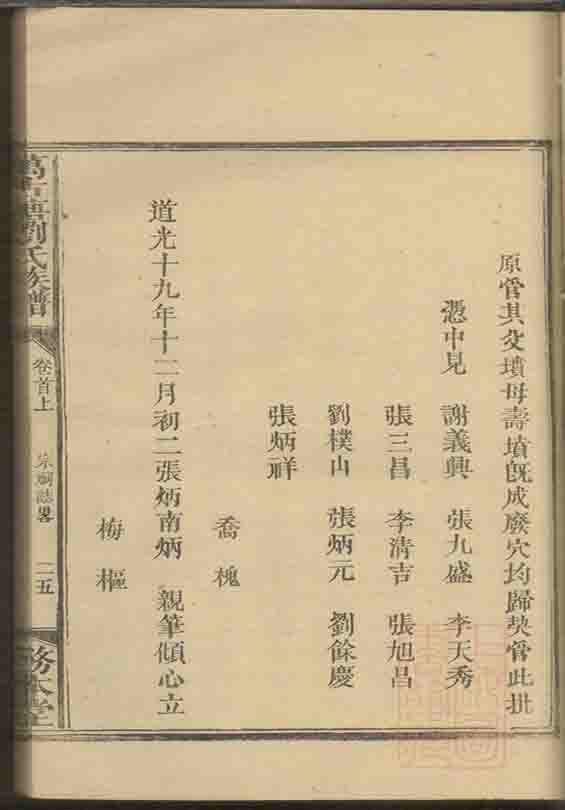 原管其父墳母壽墳旣成廢穴均歸契管此批
憑中見 謝義興 張九盛 李天秀
張三昌 李清吉 張旭昌
劉樸山 張炳元 劉餘慶
張炳祥
喬槐
道光十九年十二月初二張炳南炳 親筆傾心立
梅樞
劉氏族譜 卷首上 二五 務本堂